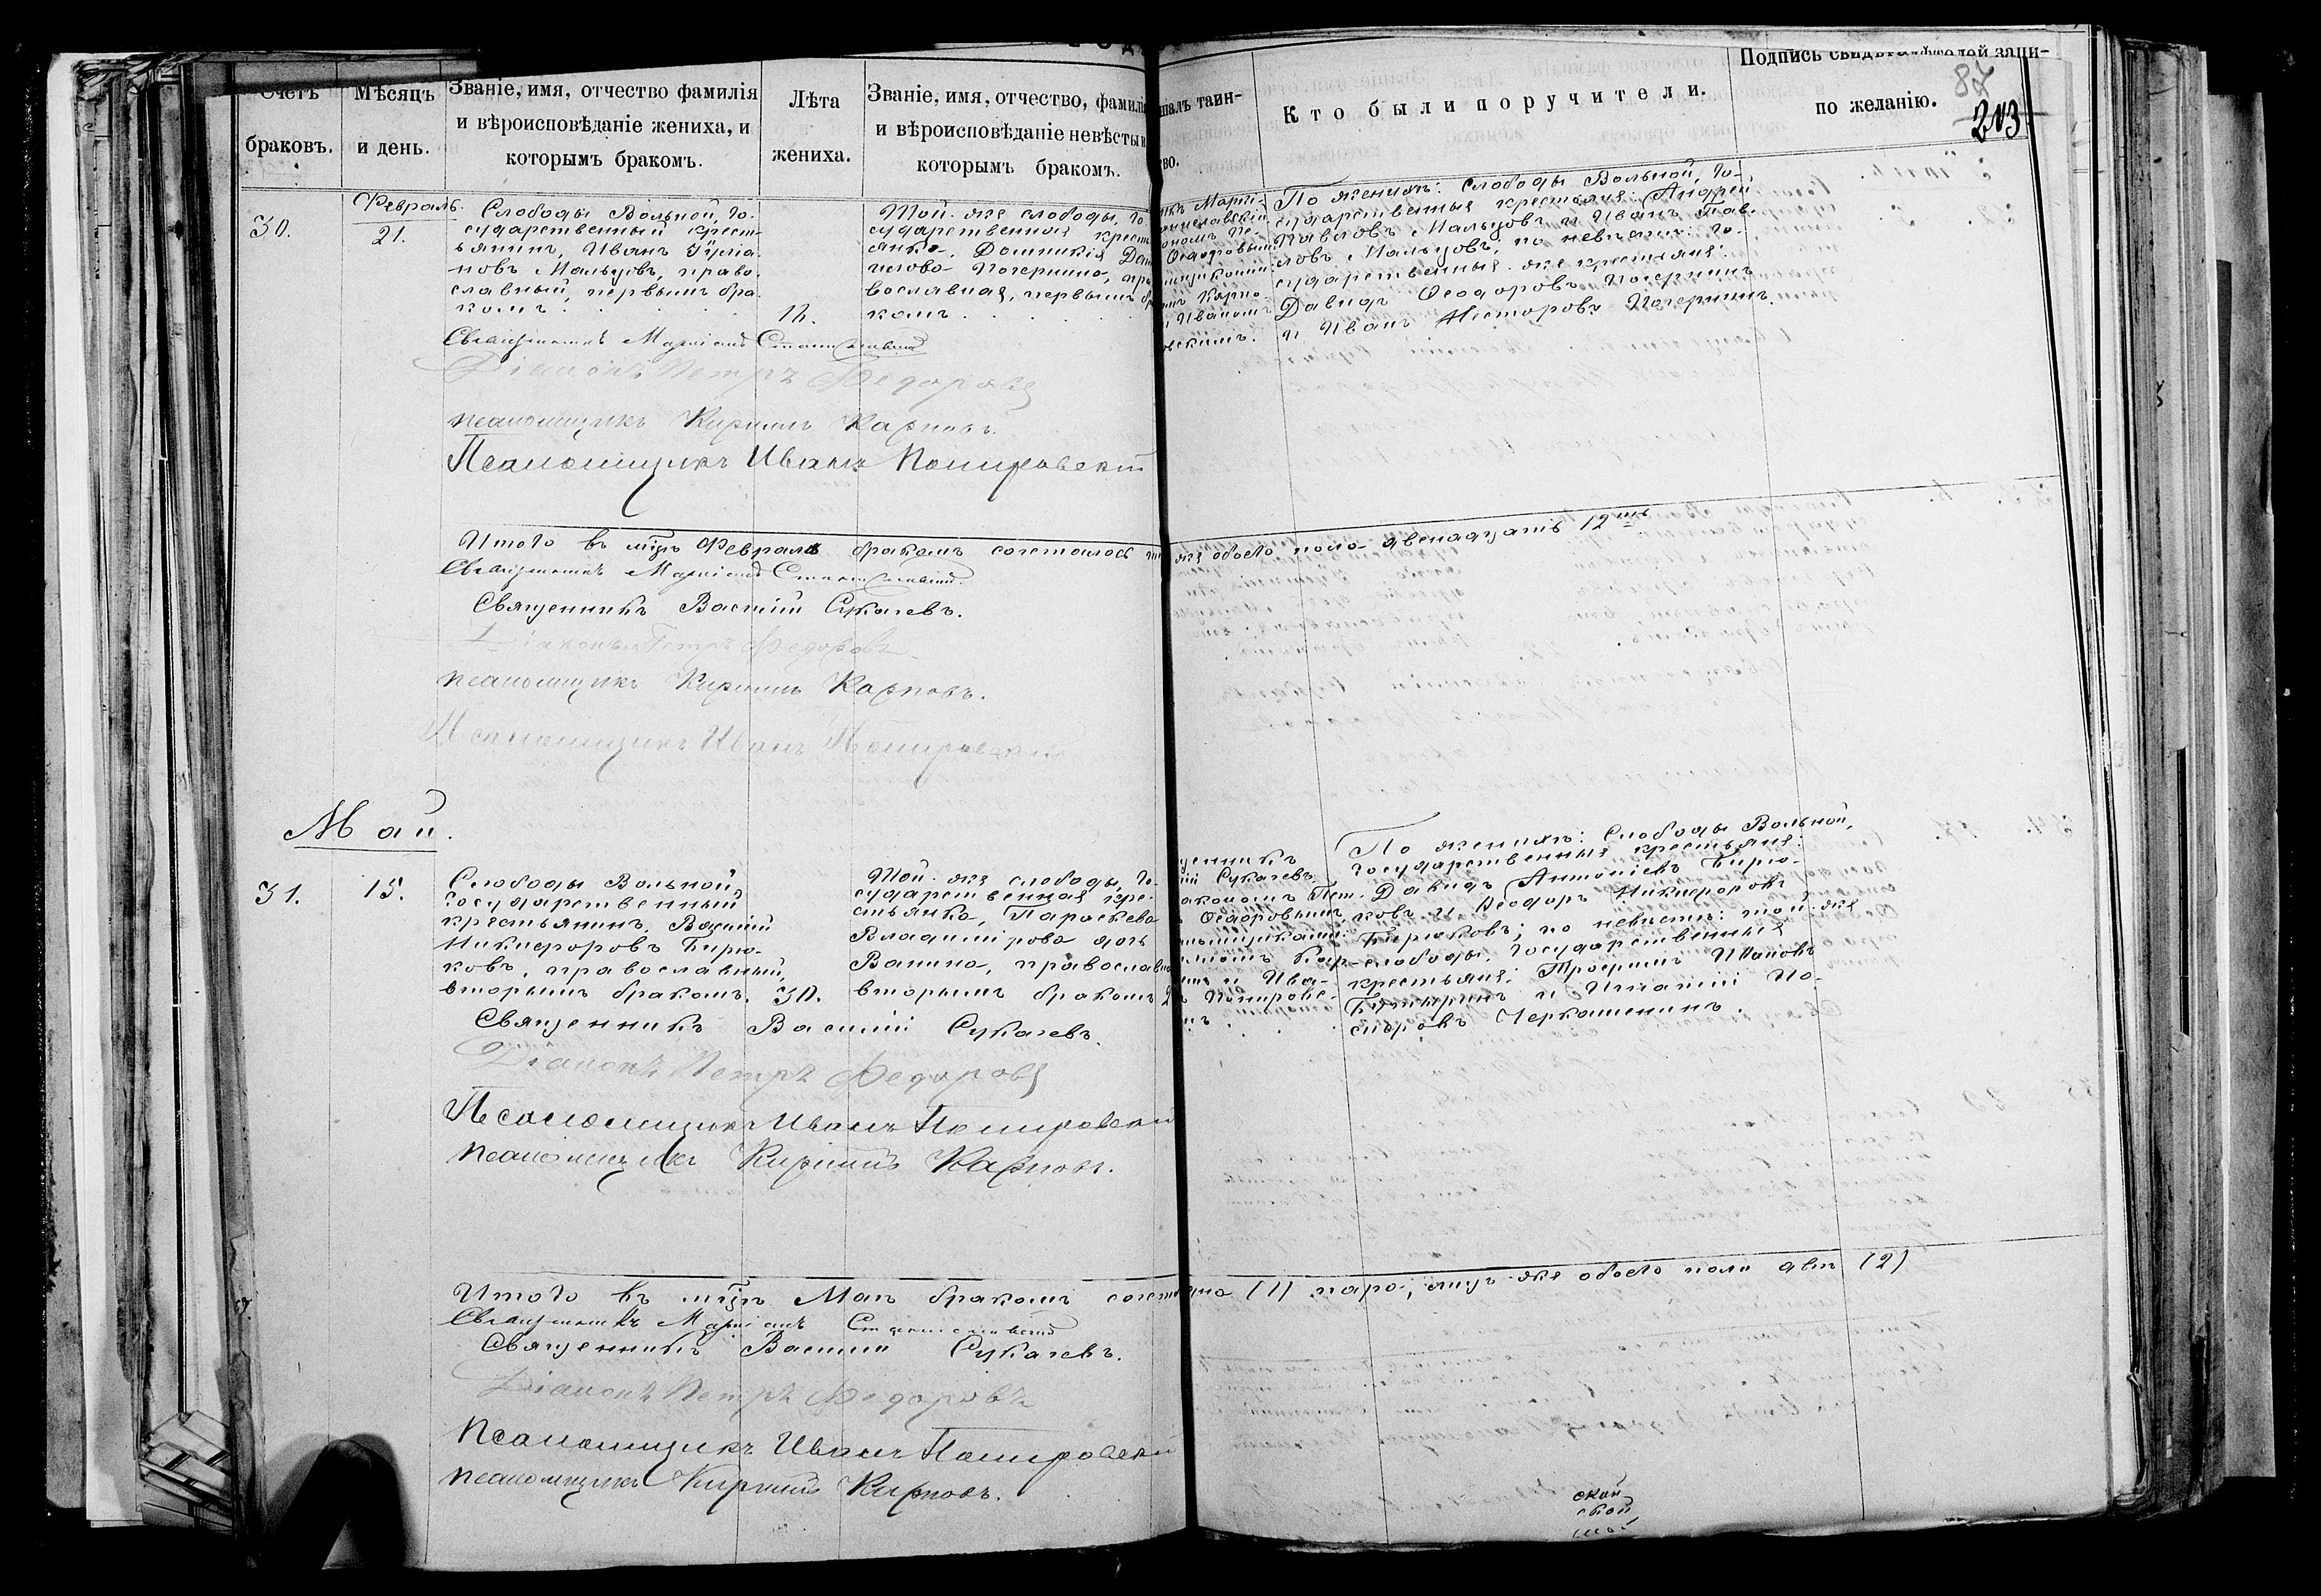 Счетъ
браковъ.
Мѣсяцъ
и день.
Званіе, имя, отчество фамилія
и вѣроисповѣданіе жениха, и
которымъ бракомъ.
Лѣта
жениха.
Званіе, имя, отчество, фамилія
и вѣроисповѣданіе невѣсты и
которымъ бракомъ.
шалъ таин-
во.
Кто были поручители.
Подпись свидѣтелей запи-
по желанію.
87
213
30.
Февраль.
21.
Слободы Вольной, го-
сударственный кресть-
янинъ, Иванъ Іуліа-
новъ Мальцовъ, право-
славный, первымъ бра-
комъ
18.
Той-же слободы, го-
сударственная крест
янка, Домникія
Почернина, пра
вославная, первымъ бр
комъ
По женихѣ: слободы Вольной, го-
сударственныя крестьяне: Андрей
Павловъ Мальцовъ и Иванъ Пав-
ловъ Мальцовъ; по невѣстѣ: го-
сударственныя-же крестьяне:
Давидъ Ѳеодоровъ Почернинъ
и Иванъ Несторовъ Почернинъ.
Священникъ
Діаконъ Петръ Федоровъ
псаломщикъ Кириллъ Карповъ.
Псаломщикъ Иванъ
Итого въ мцѣ Февралѣ бракомъ сочеталось же обоего пола двенадцать 12
Священникъ
Священникъ Василій Сукачевъ.
Діаконъ Петръ Федоровъ
псаломщикъ Кириллъ Карповъ.
Псаломщикъ Иванъ
Май.
31.
15.
Слободы Вольной,
государственный
крестьянинъ, Василій
Никифоровъ Бирю-
ковъ, православный,
вторымъ бракомъ.
30.
Той-же слободы, го-
сударственная кре-
стьянка, Параскева
Владимірова дочь
Ванина, православна
вторымъ бракомъ
щенникъ
ій Сукачевъ
іакономъ Пет-
Ѳеодоровымъ,
По женихѣ: слободы Вольной,
государственныя крестьяне:
Давидъ Антоніевъ Бирю-
ковъ и Ѳеодоръ Никифоровъ
Бирюковъ; по невѣстѣ: той-же
слободы, государственныя
крестьяне: Трофимъ Ивановъ
и Игнатій Ио-
сифовъ Черкашенинъ.
Священникъ Василій Сукачевъ.
Діаконъ Петръ Федоровъ
Псаломщикъ Иванъ
псаломщикъ Кириллъ Карповъ.
Итого въ мцѣ Маѣ бракомъ сочетана (1) пара, лицъ-же обоего пола два (2)
Священникъ
Священникъ Василій Сукачевъ.
Діаконъ Петръ Федоровъ
Псаломщикъ Иванъ
псаломщикъ Кириллъ Карповъ.